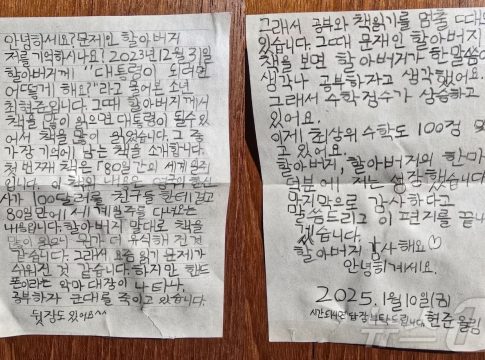 안녕하서요? 문재인 할아버지
저를 기억하시나요? 2023년 12월 31일
할아버지께 "대통령이 되려면
어떻게 해요?"라고 물어본 소년
최현준입니다. 그때 할아버지께서
책을 많이 읽으면 대통령이 될수있
어서 책을 많이 읽었습니다. 그 중
가장 기억에 남는 책을 소개합니다.
첫 번째 책은 '80일간의 세계일주'
입니다. 이 책의 내용은
사가 100달러를 친구들 한테 걸고
80일만에 세계일주를 다녀오는
내용입니다. 할아버지 말대로 책을
많이 읽으니 뭔가 더 유식해 진것
같습니다. 그래서 요즘 읽기 문제가
쉬워진것 같습니다. 하지만 핸드
폰이라는 악마 대장이 나타나,
공부하자 군대를 죽이고 있습니다.
뒷장도 있어요^^
그래서 공부와 책읽기를 멈출 때도
있습니다. 그때 문재인 할아버지
책을 보면 할아버지가 한말씀이
생각나 공부하자고 생각했어요.
그래서 수학점수가 상승하고
있어요.
이제 최상위수학도 100점
고 있어요.
할아버지, 할아버지의 한마
덕분에 저는 성장했습니다
마지막으로 감사하다고
말씀드리고 이 편지를 끝내
겠습니다.
할아버지 감사해요♡
안녕히계세요.
2025. 1월 10일(금)
시간되시면 답장부탁드립니다. 현준 올림
뉴스1